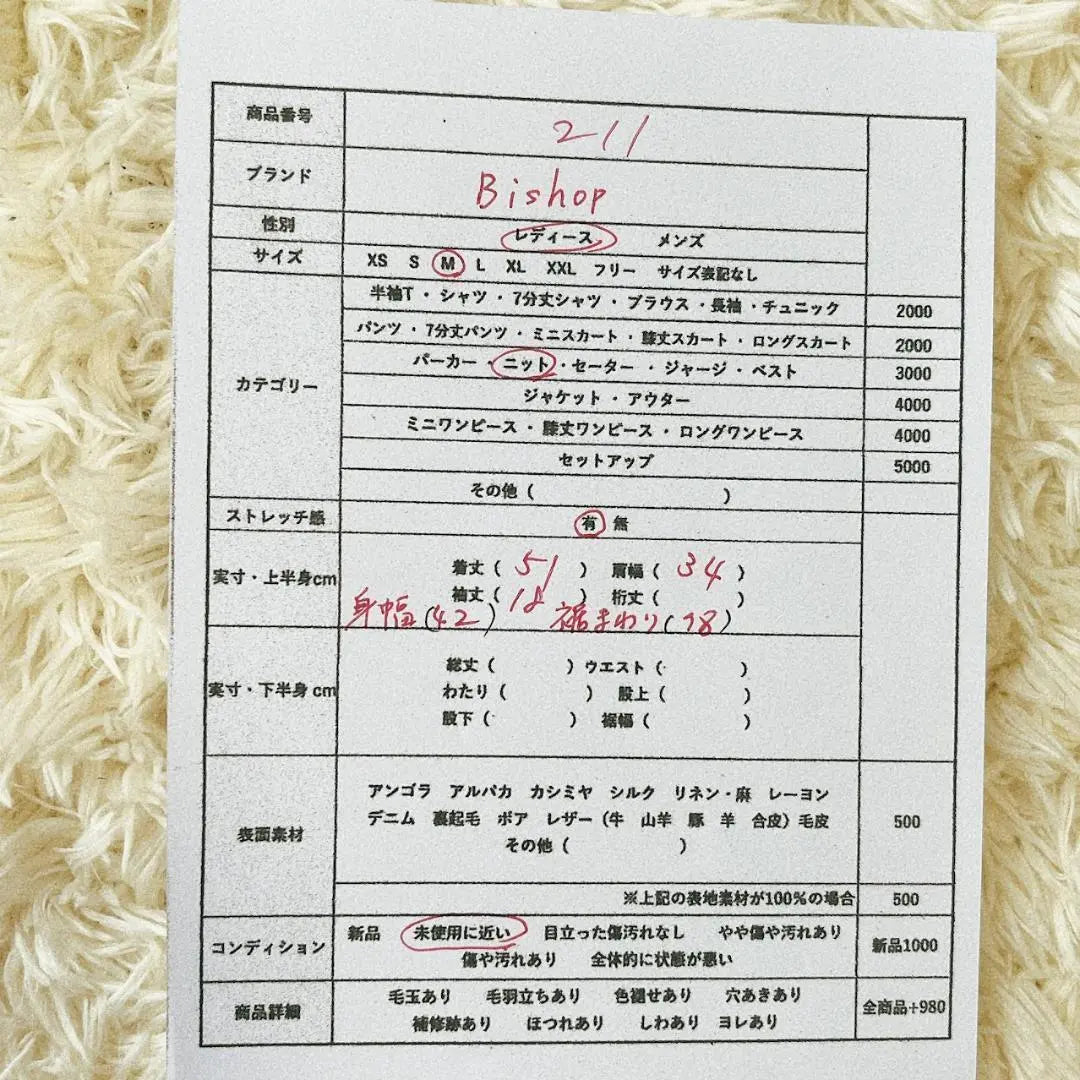 商品番号 211
ブランド Bishop
性別 レディース メンズ
サイズ XS S M L XL XXL フリー サイズ表記なし
半袖T・シャツ・7分丈シャツ・ブラウス・長袖・チュニック 2000
パンツ・7分丈パンツ・ミニスカート・膝丈スカート・ロングスカート 2000
パーカー・ニット・セーター・ジャージ・ベスト 3000
カテゴリー
ジャケット・アウター 4000
ミニワンピース・膝丈ワンピース・ロングワンピース 4000
セットアップ 5000
その他（ ）
ストレッチ感 有 無
実寸・上半身cm 着丈（ 51 ） 肩幅（ 34 ）
袖丈（ 18 ） 裄丈（ ）
身幅(42) 裾まわり(78)
総丈（ ）ウエスト（ ）
実寸・下半身cm わたり（ ） 股上（ ）
股下（ ） 裾幅（ ）
アンゴラ アルパカ カシミヤ シルク リネン・麻 レーヨン
表面素材 デニム 裏起毛 ボア レザー（牛 山羊 豚 羊 合皮）毛皮 500
その他（ ）
※上記の表地素材が100%の場合 500
コンディション 新品 未使用に近い 目立った傷汚れなし やや傷や汚れあり 新品1000
傷や汚れあり 全体的に状態が悪い
商品詳細 毛玉あり 毛羽立ちあり 色褪せあり 穴あきあり 全商品+980
補修跡あり ほつれあり しわあり ヨレあり